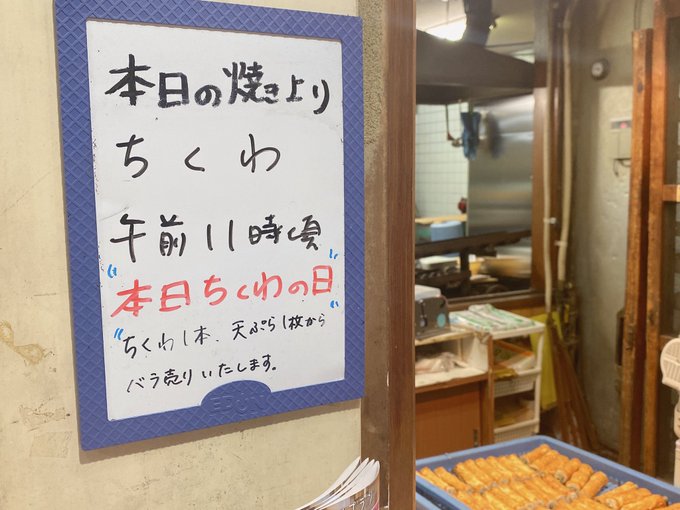 本日の焼き上り
ちくわ
午前11時頃
"本日ちくわの日"
"ちくわ1本、天ぷら1枚から
バラ売りいたします。